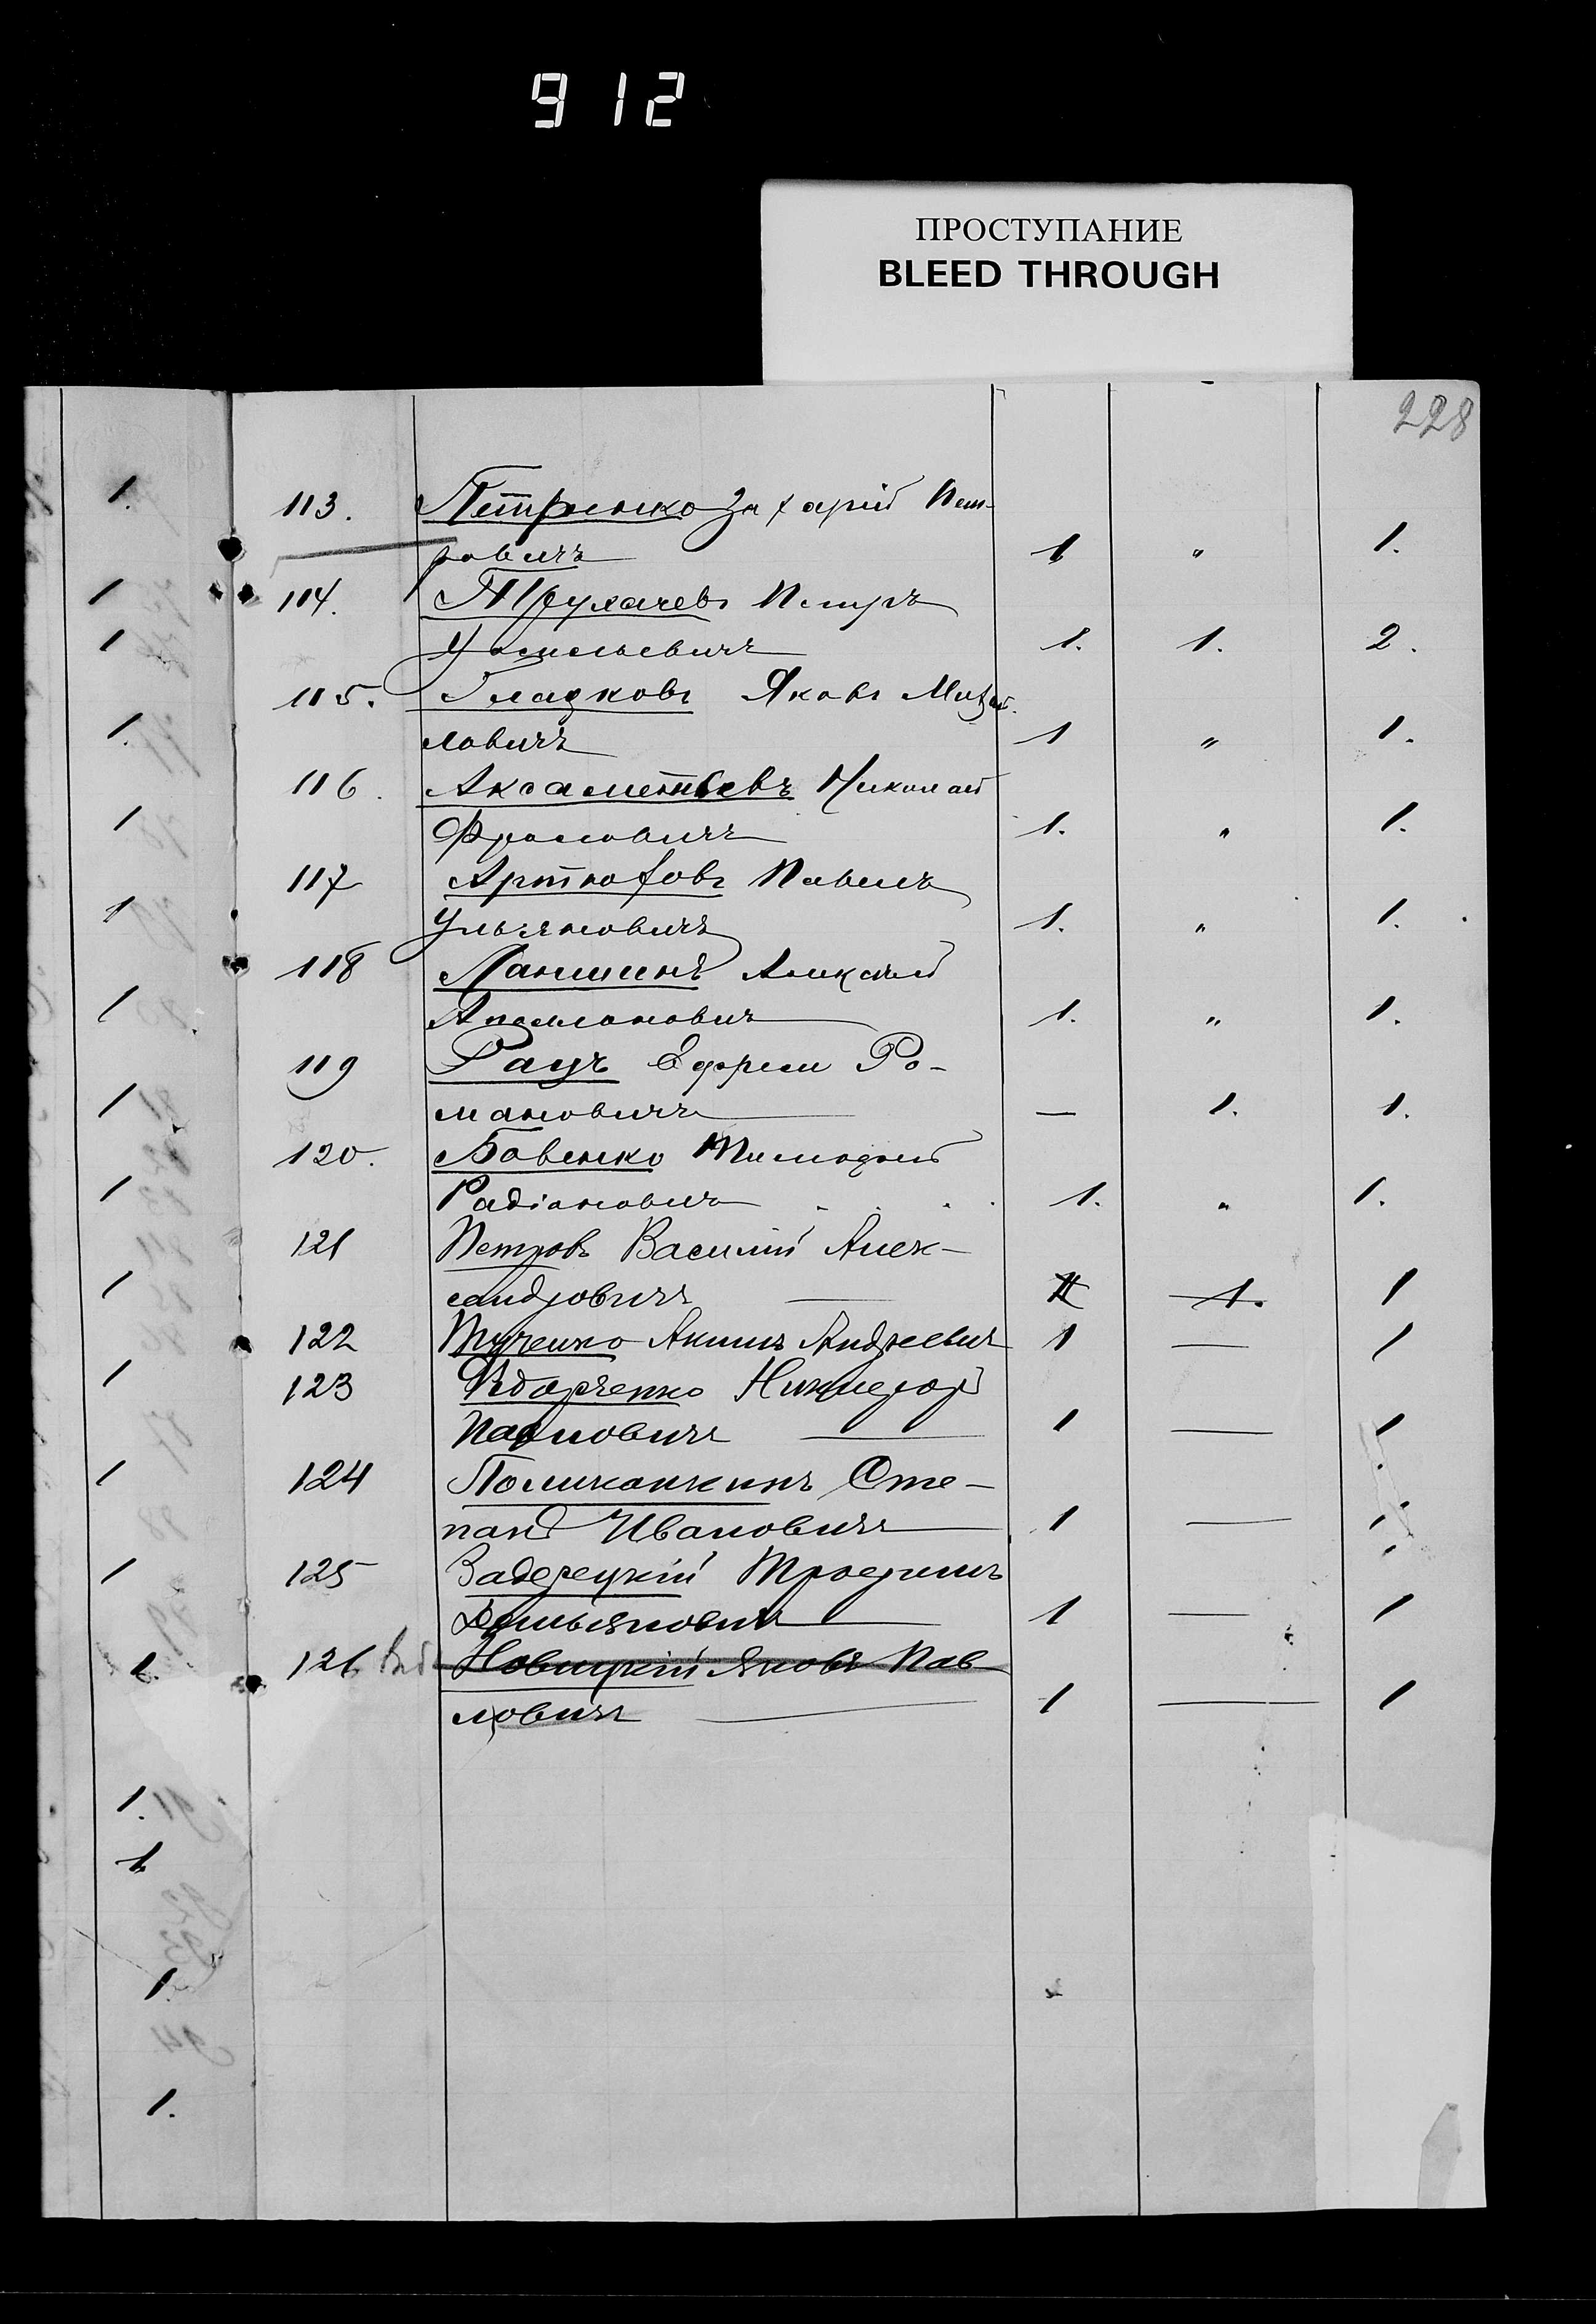 912
ПРОСТУПАНИЕ
BLEED THROUGH
228
1. 113. Петренко Захарій Пет-
ровичъ 1 " 1.
1 114. Трухачевъ Петръ
1 Емельевичъ 1. 1. 2.
115. Гладковъ Яковъ Михай-
1. ловичъ 1 " 1.
116. Аксаментьевъ Николай
1 Фроловичъ 1. " 1.
117 Артюховъ Павелъ
1 Ульяновичъ 1. " 1.
118 Ланшинъ Алексѣй
1 Аполлоновичъ 1. " 1.
119 Рацъ Ефрем Ро-
1 мановичъ — 1. 1.
120. Бовенко Тимофей
1 Радіоновичъ . . . . 1. " 1.
121 Петровъ Василій Алек-
1 сандровичъ — 1. 1
122 Тученко Акимъ Андреевичъ 1 — 1
1 123 Никифоръ
Павловичъ — 1 — 1
1 124 Поликанкинъ Сте-
панъ Ивановичъ 1 —
1 125 Задерецкій Трофимъ
Демьяновичъ 1 — 1
1. 126 Новицкій Яковъ Пав
ловичъ — 1 — 1
1. 91
1
92
93
1.
94
1.